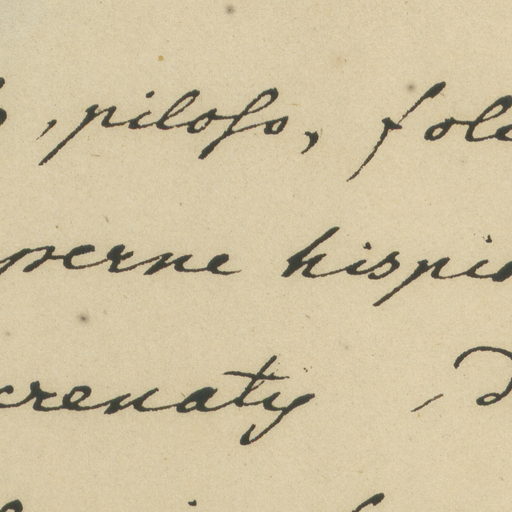 , piloso, fol
perne hispi
crenaty , d